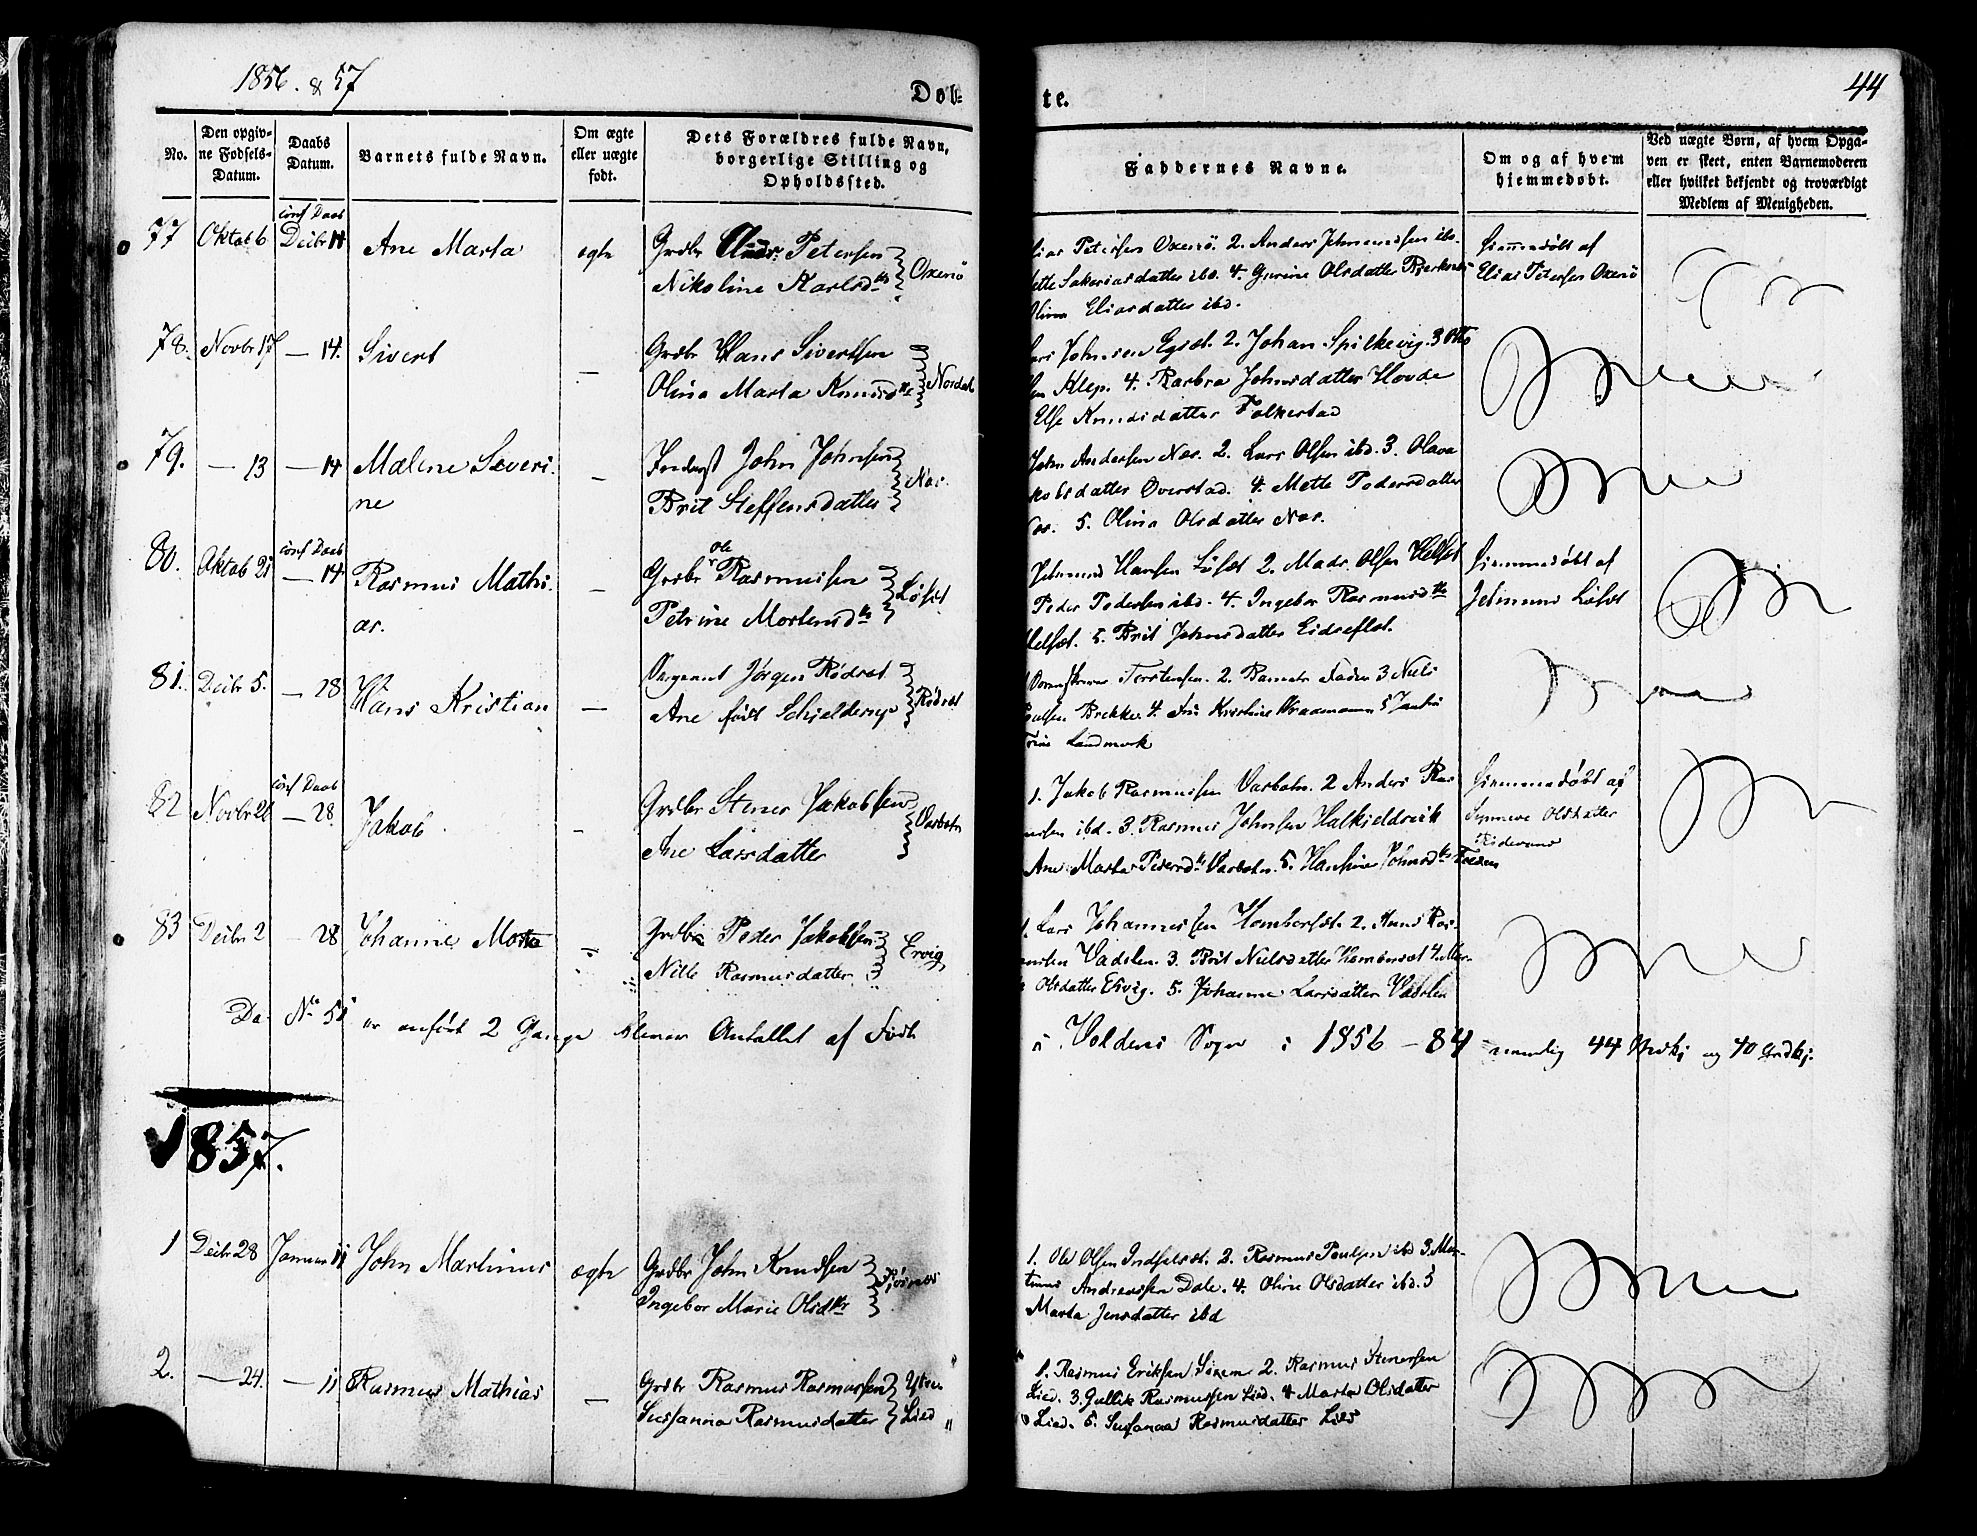 1856 & 57
Døb-
te.
44
No.
Den opgiv-
ne Fødsels-
Datum.
Daabs
Datum.
Barnets fulde Navn.
Om ægte
eller uægte
født.
Dets Forældres fulde Navn,
borgerlige Stilling og
Opholdssted.
Faddernes Navne.
Om og af hvem
hjemmedøbt.
Ved uægte Børn, af hvem Opga-
ven er skeet, enten Barnemoderen
eller hvilket bekjendt og troværdigt
Medlem af Menigheden.
77 Oktob 6 conf Daab Decbr 14 Ane Marta ægte Grdbr Petersen
Nikoline Karlsdtr Oxenö
Petersen Oxenö. 2. Anders ibd.
Sakariasdatter ibd. 4. Gurine Olsdatter
Eliasdatter ibd.
Hjemmedöbt af
Elias Petersen Oxenö
78. Novbr 17 — 14. Sivert — Grdbr Hans Sivertsen
Olina Marta Knudsdtr
Johnsen Egset. 2. Johan Spilkevig. 3 Otto
Klep. 4. Barbra Johnsdatter Hovde
Else Knudsdatter Folkestad
79. — 13 — 14 Malene Severi-
ne — Inderst John Johnsen
Brit Steffensdatter Nos.
John Andersen Nos. 2. Lars Olsen ibd. 3. Olava
datter Överstad. 4. Mette Pedersdatter
Nos. 5. Olina Olsdatter Nos.
80. Oktob 21 conf Daab — 14 Rasmus Mathi-
as. — Grdbr Ole Rasmussen
Petrine Mortensdtr Löset
Jetmund Hansen Löset 2. Mads Olsen Helset
Peder Pedersen ibd. 4. Ingebor Rasmusdtr
Helset. 5. Brit Johnsdatter Eidseflot.
Hjemmedöbt af
Jetmund Löset
81. Decbr 5. — 28 Hans Kristian — Sergeant Jörgen Rödset
Ane födt Schjelderup Rödset
Torstensen. 2. 3 Niels
Brekke. 4. Fru Kristine
Landmark
82 Novbr 26 conf Daab — 28. Jakob — Grdbr Stener Jakobsen
Ane Larsdatter Vasbotn
1. Jakob Rasmussen Vasbotn. 2 Anders Ras-
mussen ibd. 3. Rasmus Johnsen
Ane Marta Pedersdtr Vasbotn. 5. Hansine Johnsdtr
Hjemmedöbt af
Synneve Olsdatter
83 Decbr 2 — 28 Johanne Marta — Grdbr Peder Jakobsen
Nille Rasmusdatter Ervig
1. Lars Johannessen Homborset. 2. Knud Ras-
mussen Vadslen. 3. Brit Nielsdatter
Olsdatter Ervig. 5. Johanne Larsdatter Vadslen
Da No 51 er anfört 2 Gange bliver Antallet af Födte
i Voldens Sogn i 1856 – 84 nemlig 44 og 40
1857.
1 Decbr 28 Januar 11 John Martinus ægte Grdbr John Knudsen
Ingebor Marie Olsdtr
1. Ole Olsen Indselset. 2. Rasmus Poulsen ibd 3. Mar-
tinus Andreassen Dale. 4. Oline Olsdatter ibd. 5
Marta Jensdatter ibd
2. — 24. — 11 Rasmus Mathias — Grdbr Rasmus Rasmussen
Sussanna Rasmusdatter Ytre Lied
1. Rasmus Eriksen 2. Rasmus Stenersen
Lied. 3. Gullik Rasmussen Lied. 4 Marta Olsdatter
Lied. 5. Susanna Rasmusdatter Lied